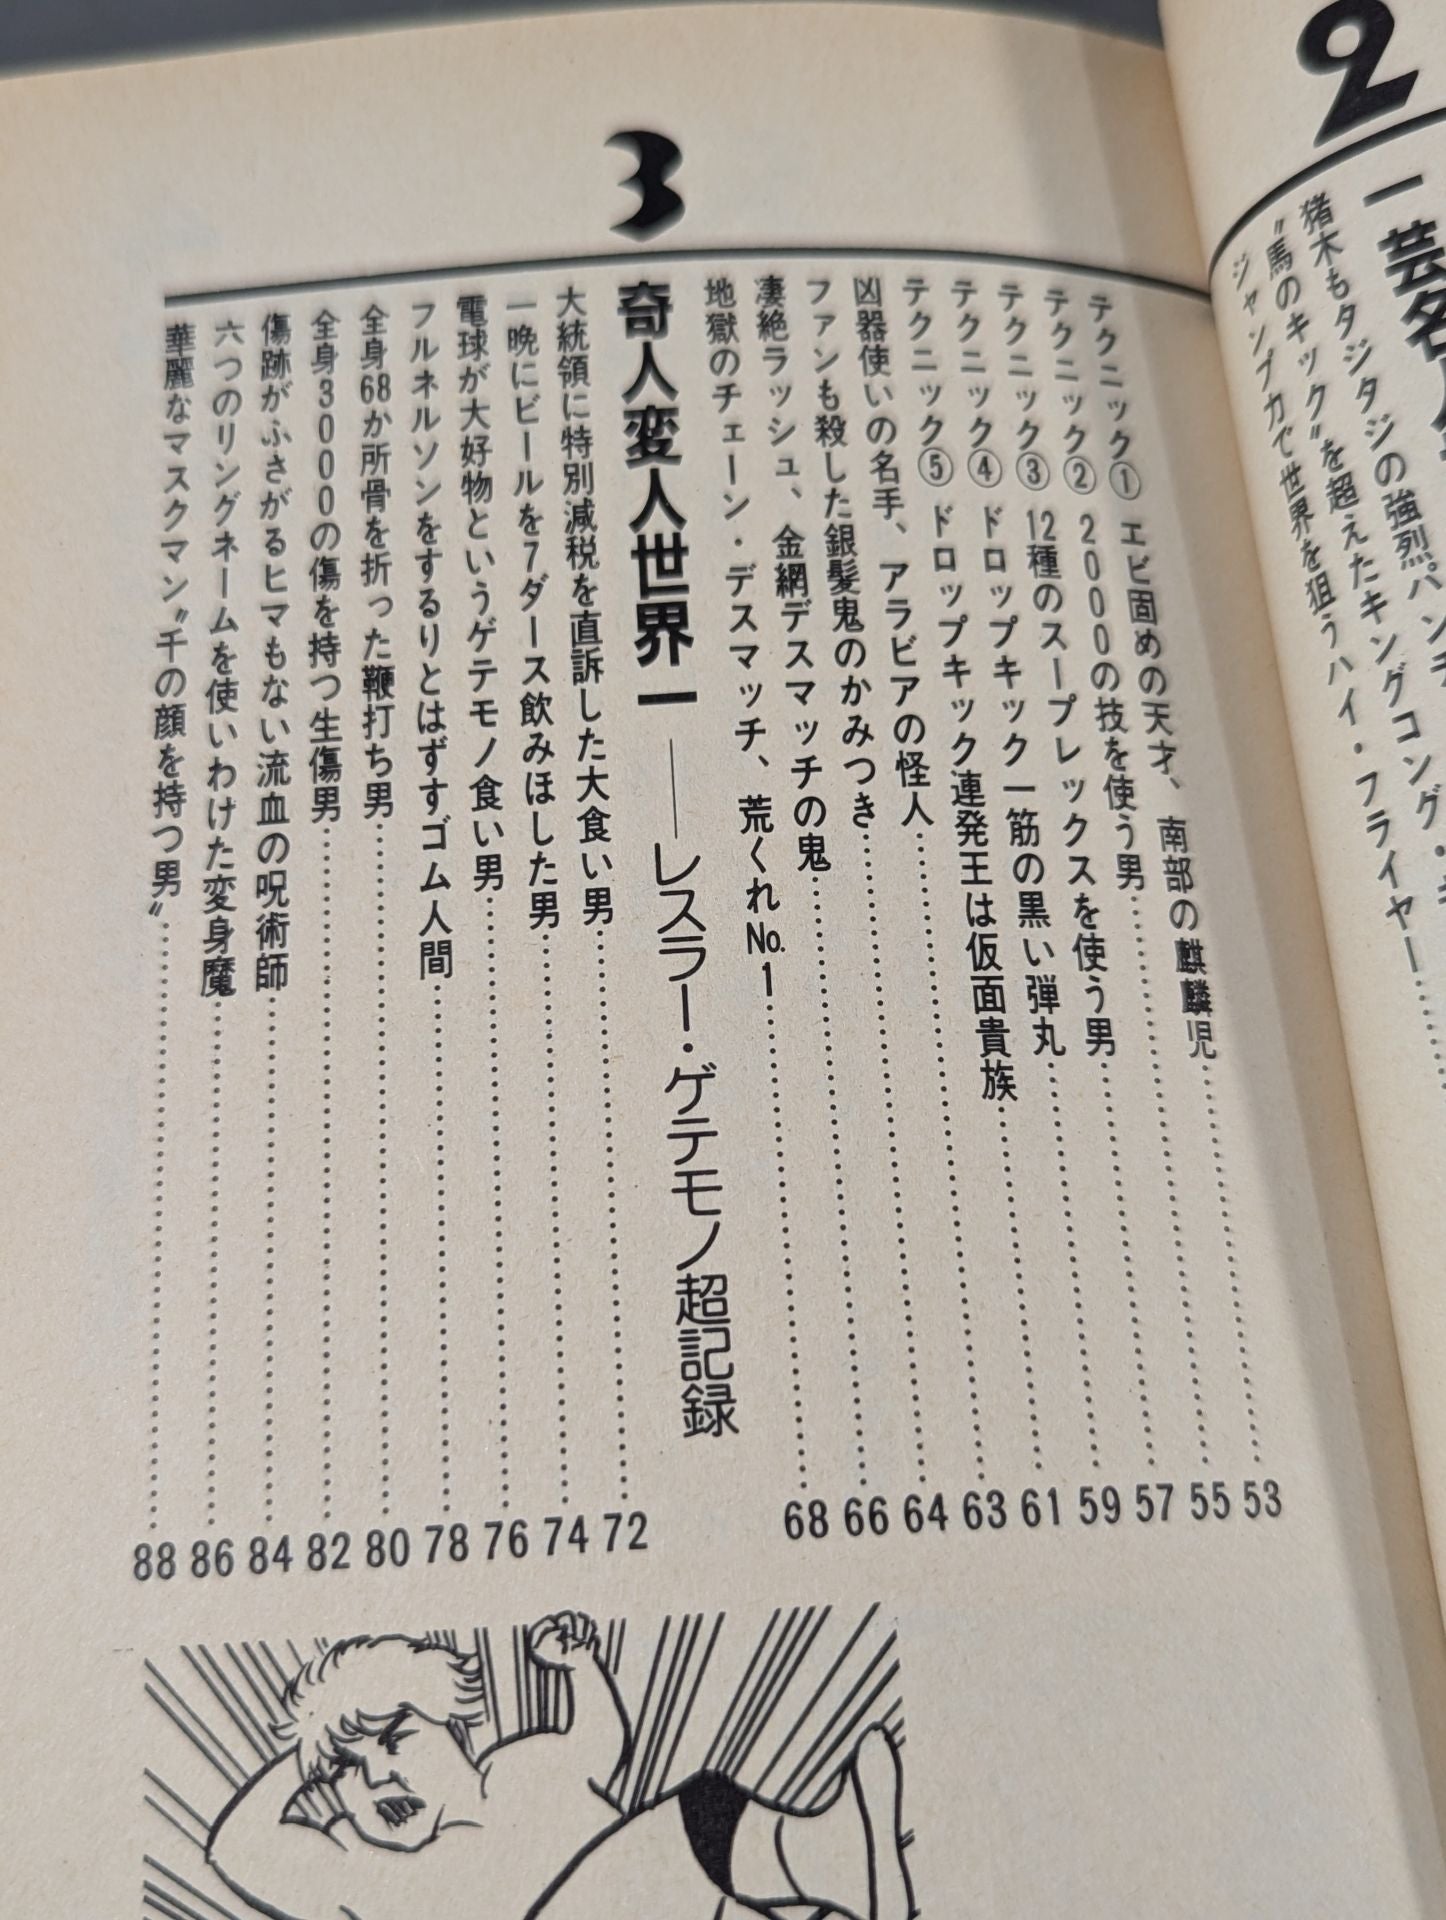 2
一芸名人
猪木もタジタジの強烈パンチ
〝馬のキック〟を超えたキングコング・
ジャンプ力で世界を狙うハイ・フライヤー
テクニック① エビ固めの天才、南部の麒麟児 53
テクニック② 2000の技を使う男 55
テクニック③ 12種のスープレックスを使う男 57
テクニック④ ドロップキック一筋の黒い弾丸 59
テクニック⑤ ドロップキック連発王は仮面貴族 61
凶器使いの名手、アラビアの怪人 63
ファンも殺した銀髪鬼のかみつき 64
凄絶ラッシュ、金網デスマッチの鬼 66
地獄のチェーン・デスマッチ、荒くれNo.1 68
3
奇人変人世界一――レスラー・ゲテモノ超記録
大統領に特別減税を直訴した大食い男 72
一晩にビールを7ダース飲みほした男 74
電球が大好物というゲテモノ食い男 76
フルネルソンをするりとはずすゴム人間 78
全身68か所骨を折った鞭打ち男 80
全身3000の傷を持つ生傷男 82
傷跡がふさがるヒマもない流血の呪術師 84
六つのリングネームを使いわけた変身魔 86
華麗なマスクマン〝千の顔を持つ男〟 88